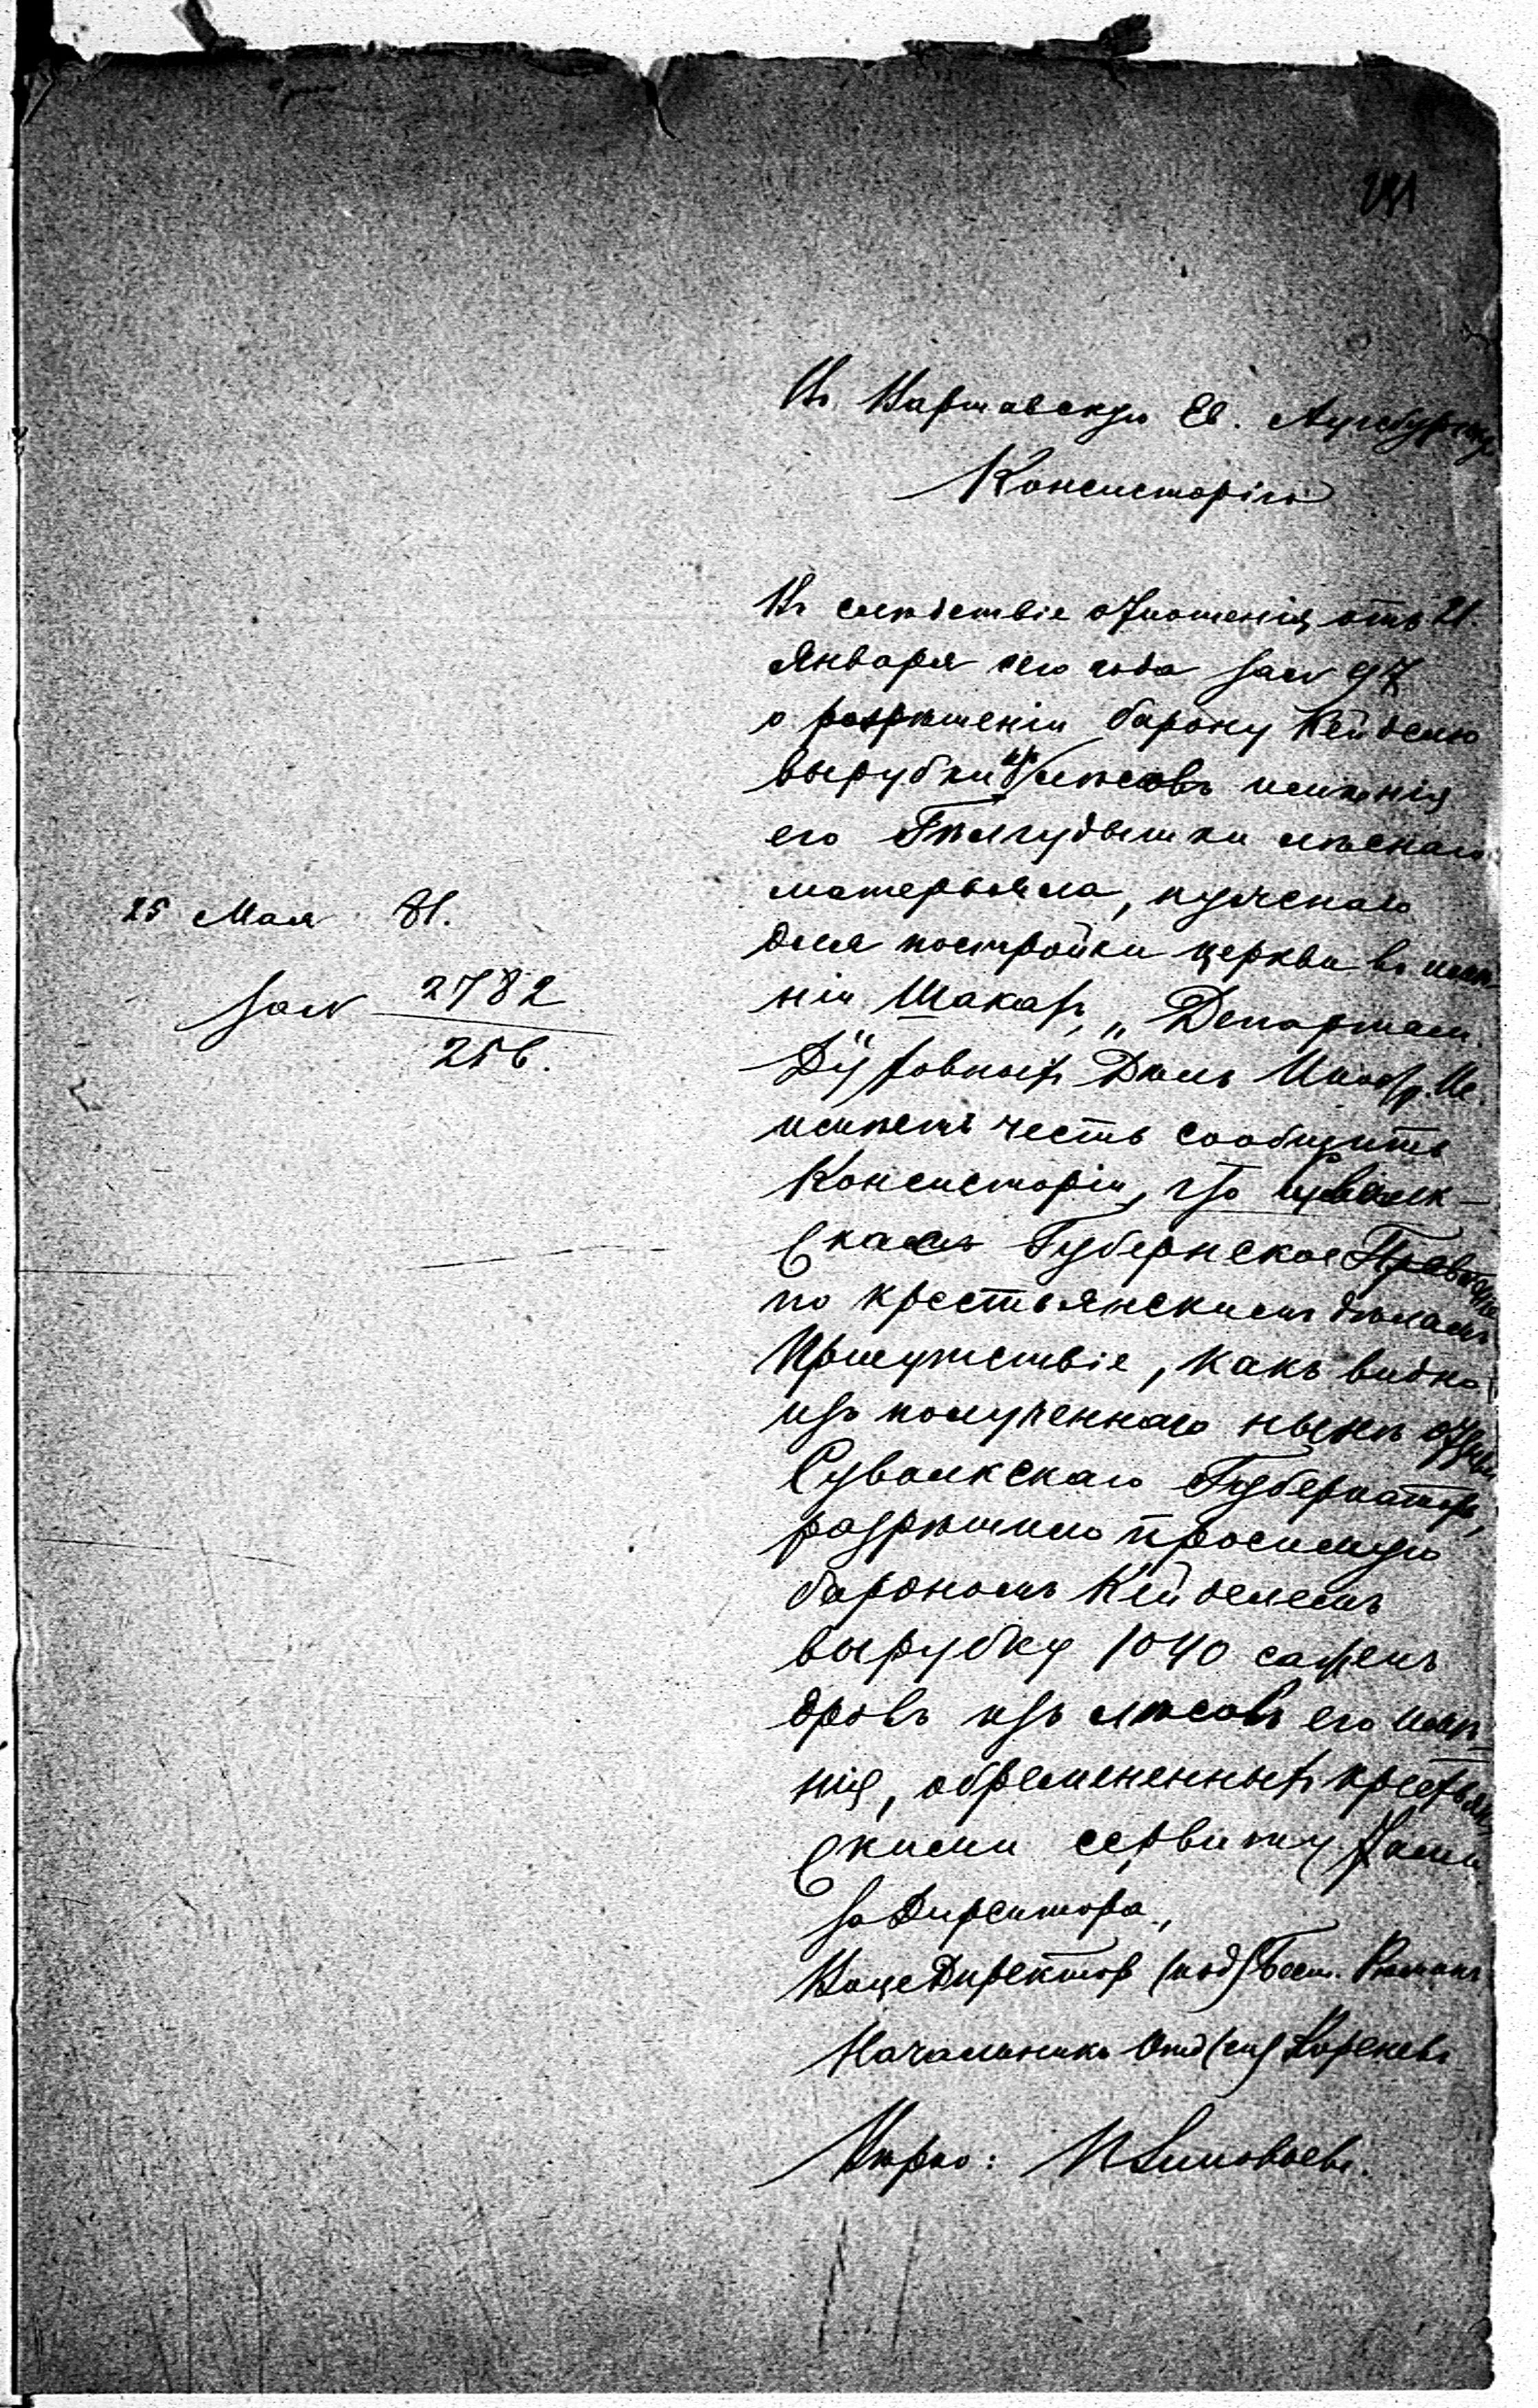 Въ Варшавскую Ев. Аугсбургскую
Консисторію
Въ слѣдствіе отношенія отъ 21.
Января сего года за № 97
о разрѣшеніи барону Кейделю
вырубки изъ лѣсовъ имѣнія
его Гѣлгудышки лѣснаго
матерьяла, нужнаго
для постройки церкви въ имѣ-
ніи Шакахъ, „Департам.
Духовныхъ Дѣлъ Иностр. Ис.
имѣетъ честь сообщить
Консисторіи, что Сувалк-
скаемъ Губернское
по крестьянскимъ дѣламъ
Присутствіе, какъ видно
изъ полученнаго нынѣ отзыва
Сувалкскаго Губернатора,
разрѣшило просимую
барономъ Кейделемъ
вырубку 1040 сажень
дровъ изъ лѣсовъ его имѣ-
нія, обремененныхъ крестьян-
скими сервитутами
за Директора,
Вице Директор (под)
Началникъ Отд (
Вѣрно:
25 Мая 81.
за № 2782
256.